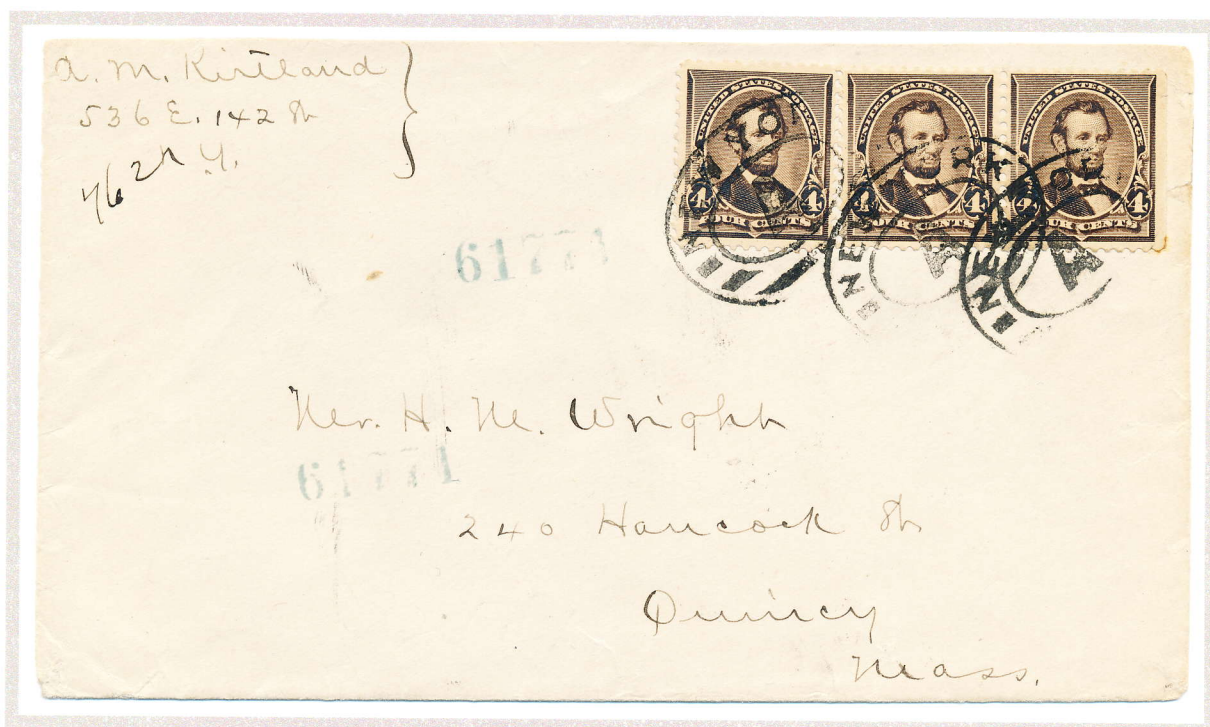 A. M. Kirtland
536 E. 142 St
N.Y.
UNITED STATES POSTAGE
4 4
FOUR CENTS
UNITED STATES POSTAGE
4 4
FOUR CENTS
UNITED STATES POSTAGE
4 4
FOUR CENTS
NEW YORK
A
NEW YORK
A
61771
Mr. H. M. Wright
61771
240 Hancock St
Quincy
Mass.